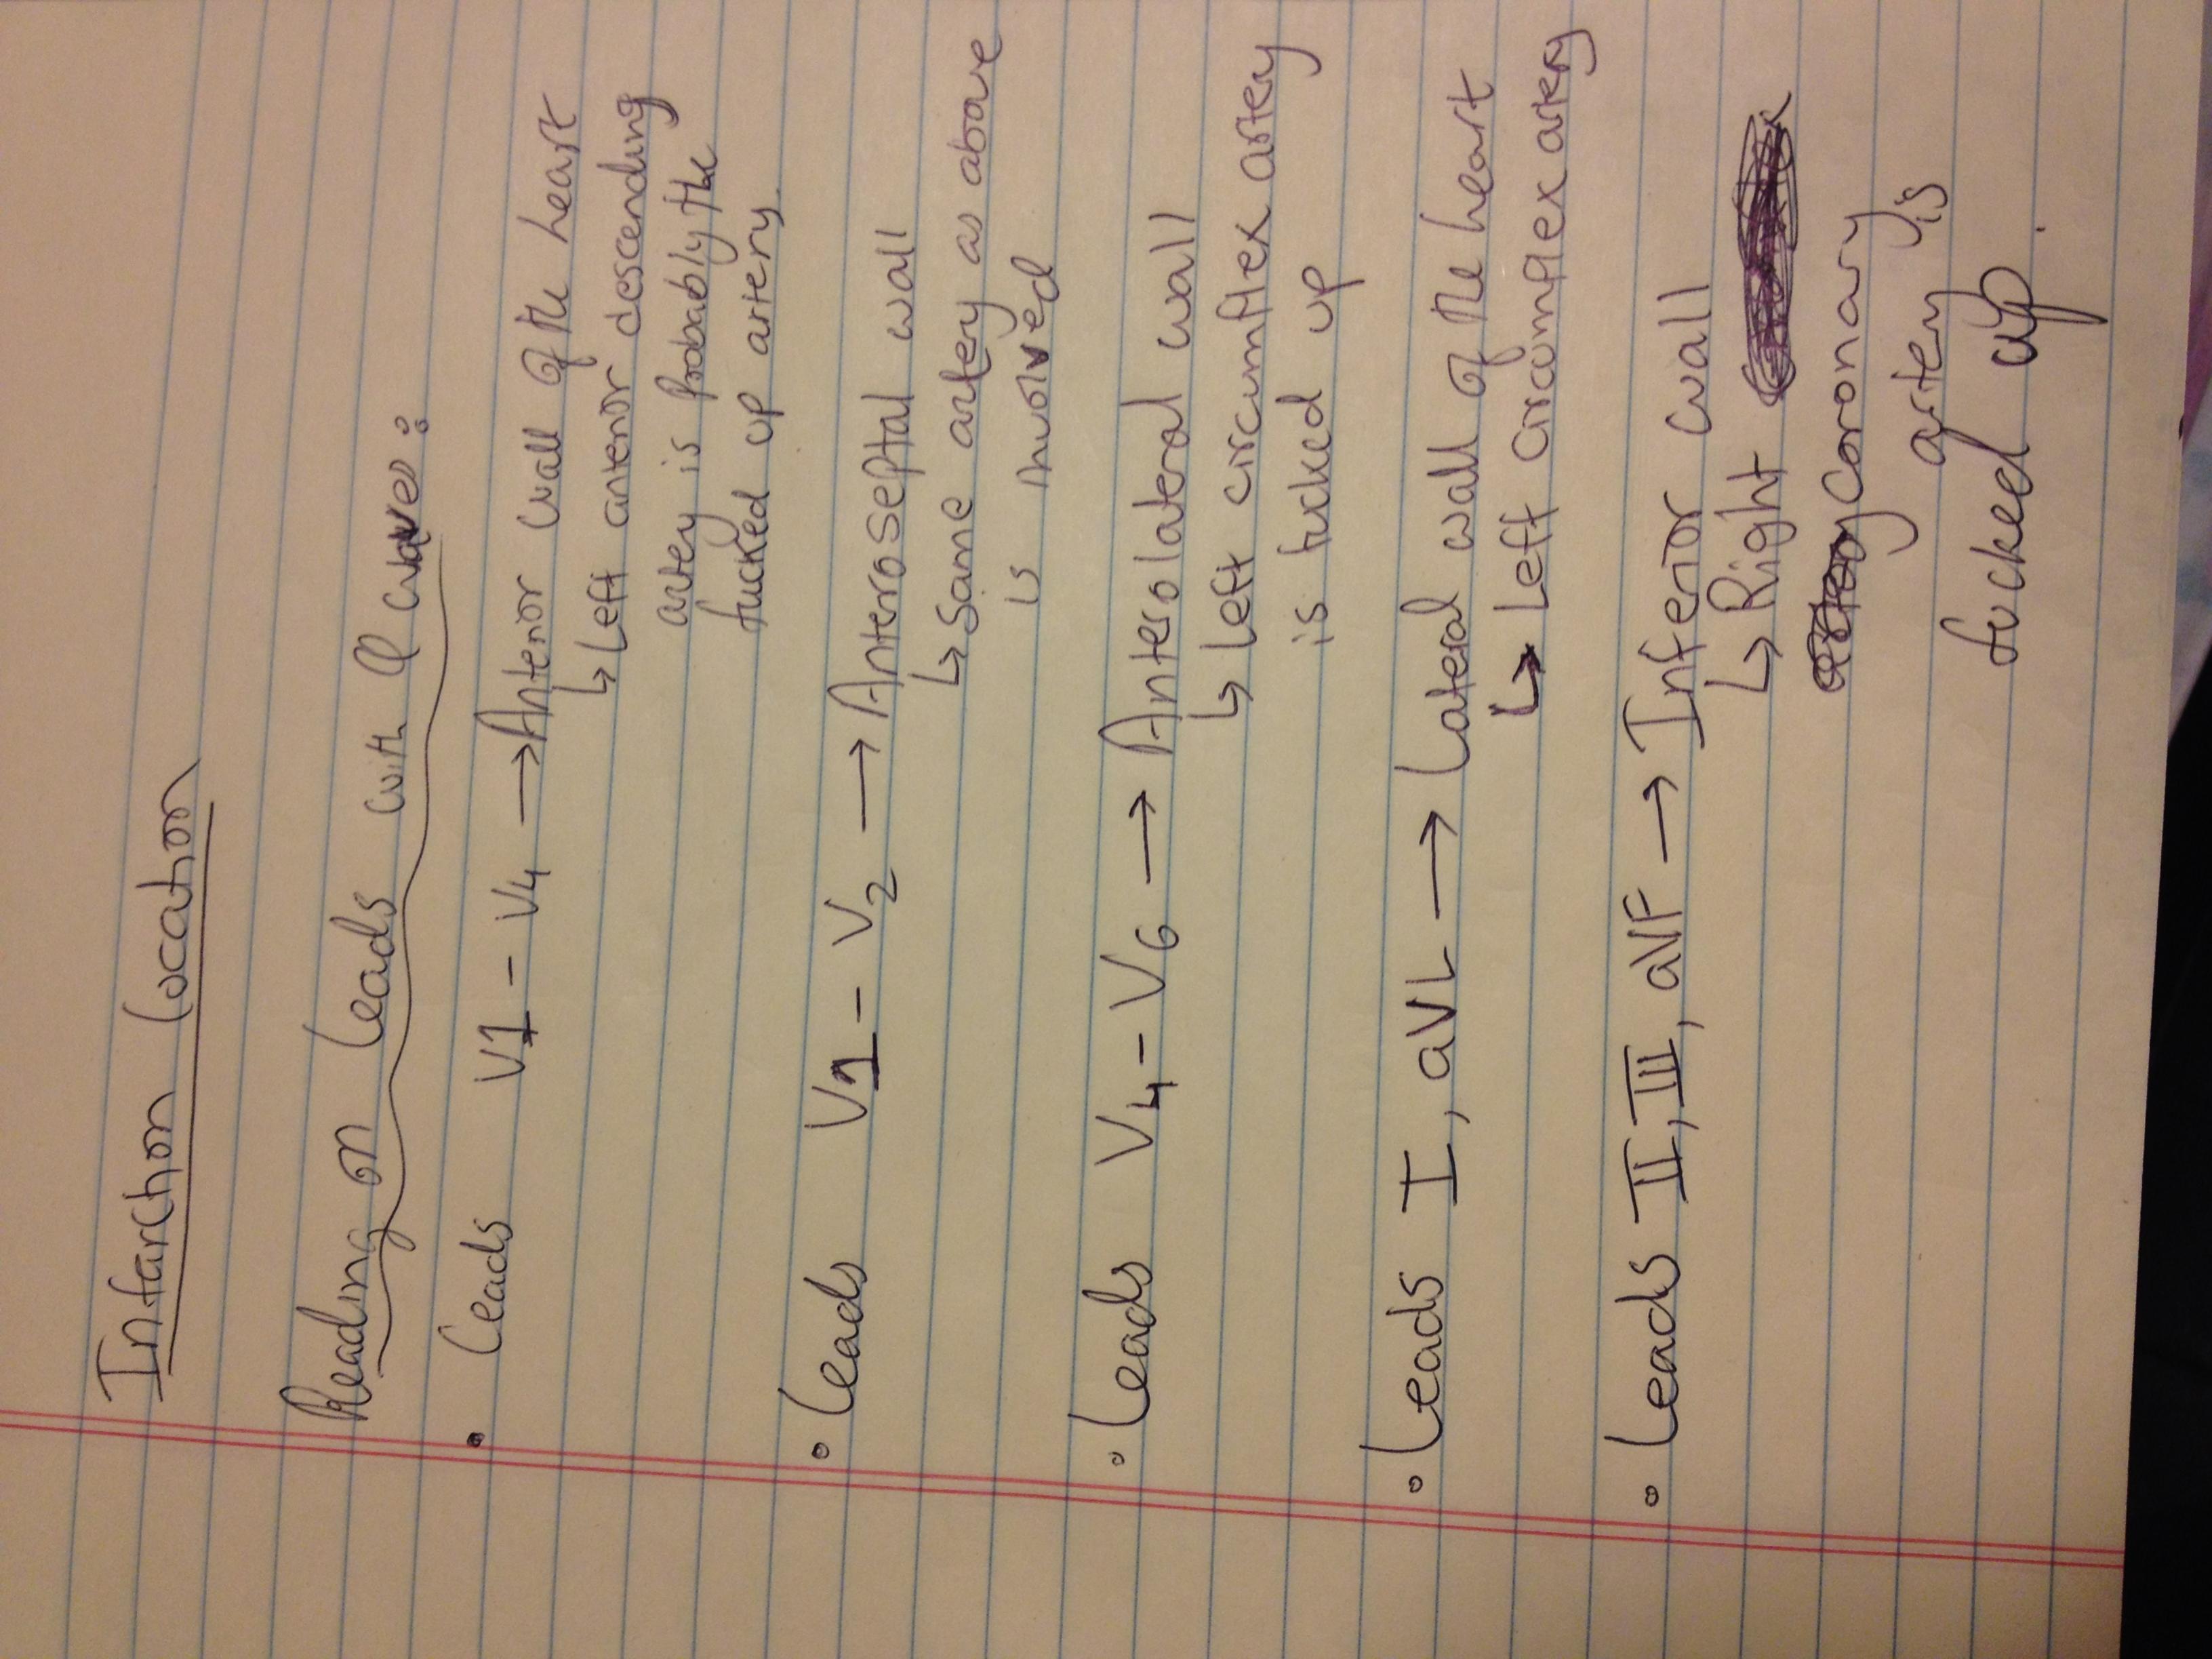 Infarction Location
Reading on Leads with Q waves:
• Leads V1 - V4 → Anterior wall of the heart
↳ Left anterior descending
artery is probably the
fucked up artery.
• Leads V1 - V2 → Anteroseptal wall
↳ same artery as above
is involved
• Leads V4 - V6 → Anterolateral wall
↳ left circumflex artery
is fucked up
• Leads I, aVL → Lateral wall of the heart
↳ Left circumflex artery
• Leads II, III, aVF → Inferior wall
↳ Right
coronary
artery is
fucked up.